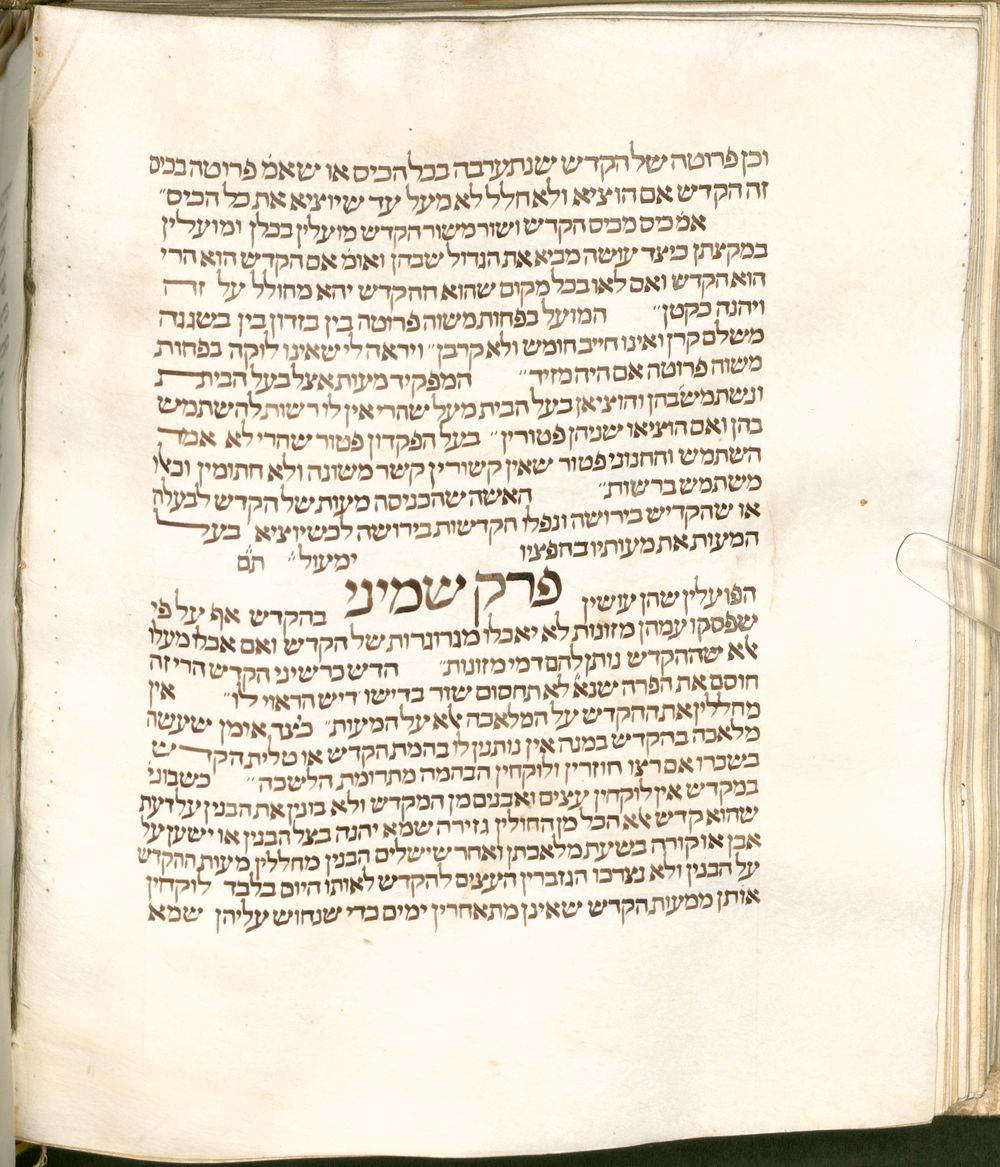 וכן פרוטה של הקדש שנתערבה בכל הכיס או שאמ׳ פרוטה בכיס
זה הקדש אם הוציא ולא חלל לא מעל עד שיוציא את כל הכיס״
אמ׳ כיס מכיס הקדש ושור משור הקדש מועלין בכלן ומועלין
במקצתן כיצד עושה מביא את הגדול שבהן ואומ׳ אם הקדש הוא הרי
הוא הקדש ואם לאו בכל מקום שהוא ההקדש יהא מחולל על זה
ויהנה בקטן״ המועל בפחות משוה פרוטה בין בזדון בין בשגגה
משלם קרן ואינו חייב חומש ולא קרבן״ ויראה לי שאינו לוקה בפחות
משוה פרוטה אם היה מזיד״ המפקיד מעות אצל בעל הבית
ונשתמש בהן והוציאן בעל הבית מעל שהרי אין לו רשות להשתמש
בהן ואם הוציאו שניהן פטורין״ בעל הפקדון פטור שהרי לא אמר
השתמש והחנוני פטור שאין קשורין קשר משונה ולא חתומין וכאלו
משתמש ברשות״ האשה שהכניסה מעות של הקדש לבעלה
או שהקדיש בירושה ונפלו הקדשות בירושה לכשיוציא בעל
המעות את מעותיו בחפציו ימעול״ תם
פרק שמיני
הפועלין שהן עושין בהקדש אף על פי
שפסקו עמהן מזונות לא יאכלו מגרוגרות של הקדש ואם אכלו מעלו
אלא שההקדש נותן להם דמי מזונות״ הדש כרשיני הקדש הרי זה
חוסם את הפרה שנא׳ לא תחסום שור בדישו דיש הראוי לו״ אין
מחללין את ההקדש על המלאכה אלא על המעות״ כיצד אומן שעשה
מלאכה בהקדש במנה אין נותנין לו בהמת הקדש או טלית הקדש
בשכרו אם רצו חוזרין ולוקחין הבהמה מתרומת הלשכה״ כשבוני׳
במקדש אין לוקחין עצים ואבנים מן המקדש ולא בונין את הבנין על דעת
שהוא קדש אלא הכל מן החולין גזירה שמא יהנה בצל הבנין או ישען על
אבן או קורה בשעת מלאכתן ואחר שישלים הבנין מחללין מעות ההקדש
על הבנין ולא נצרכו הגזברין העצים להקדש לאותו היום בלבד לוקחין
אותן ממעות הקדש שאינן מתאחרין ימים כדי שנחוש עליהן שמא